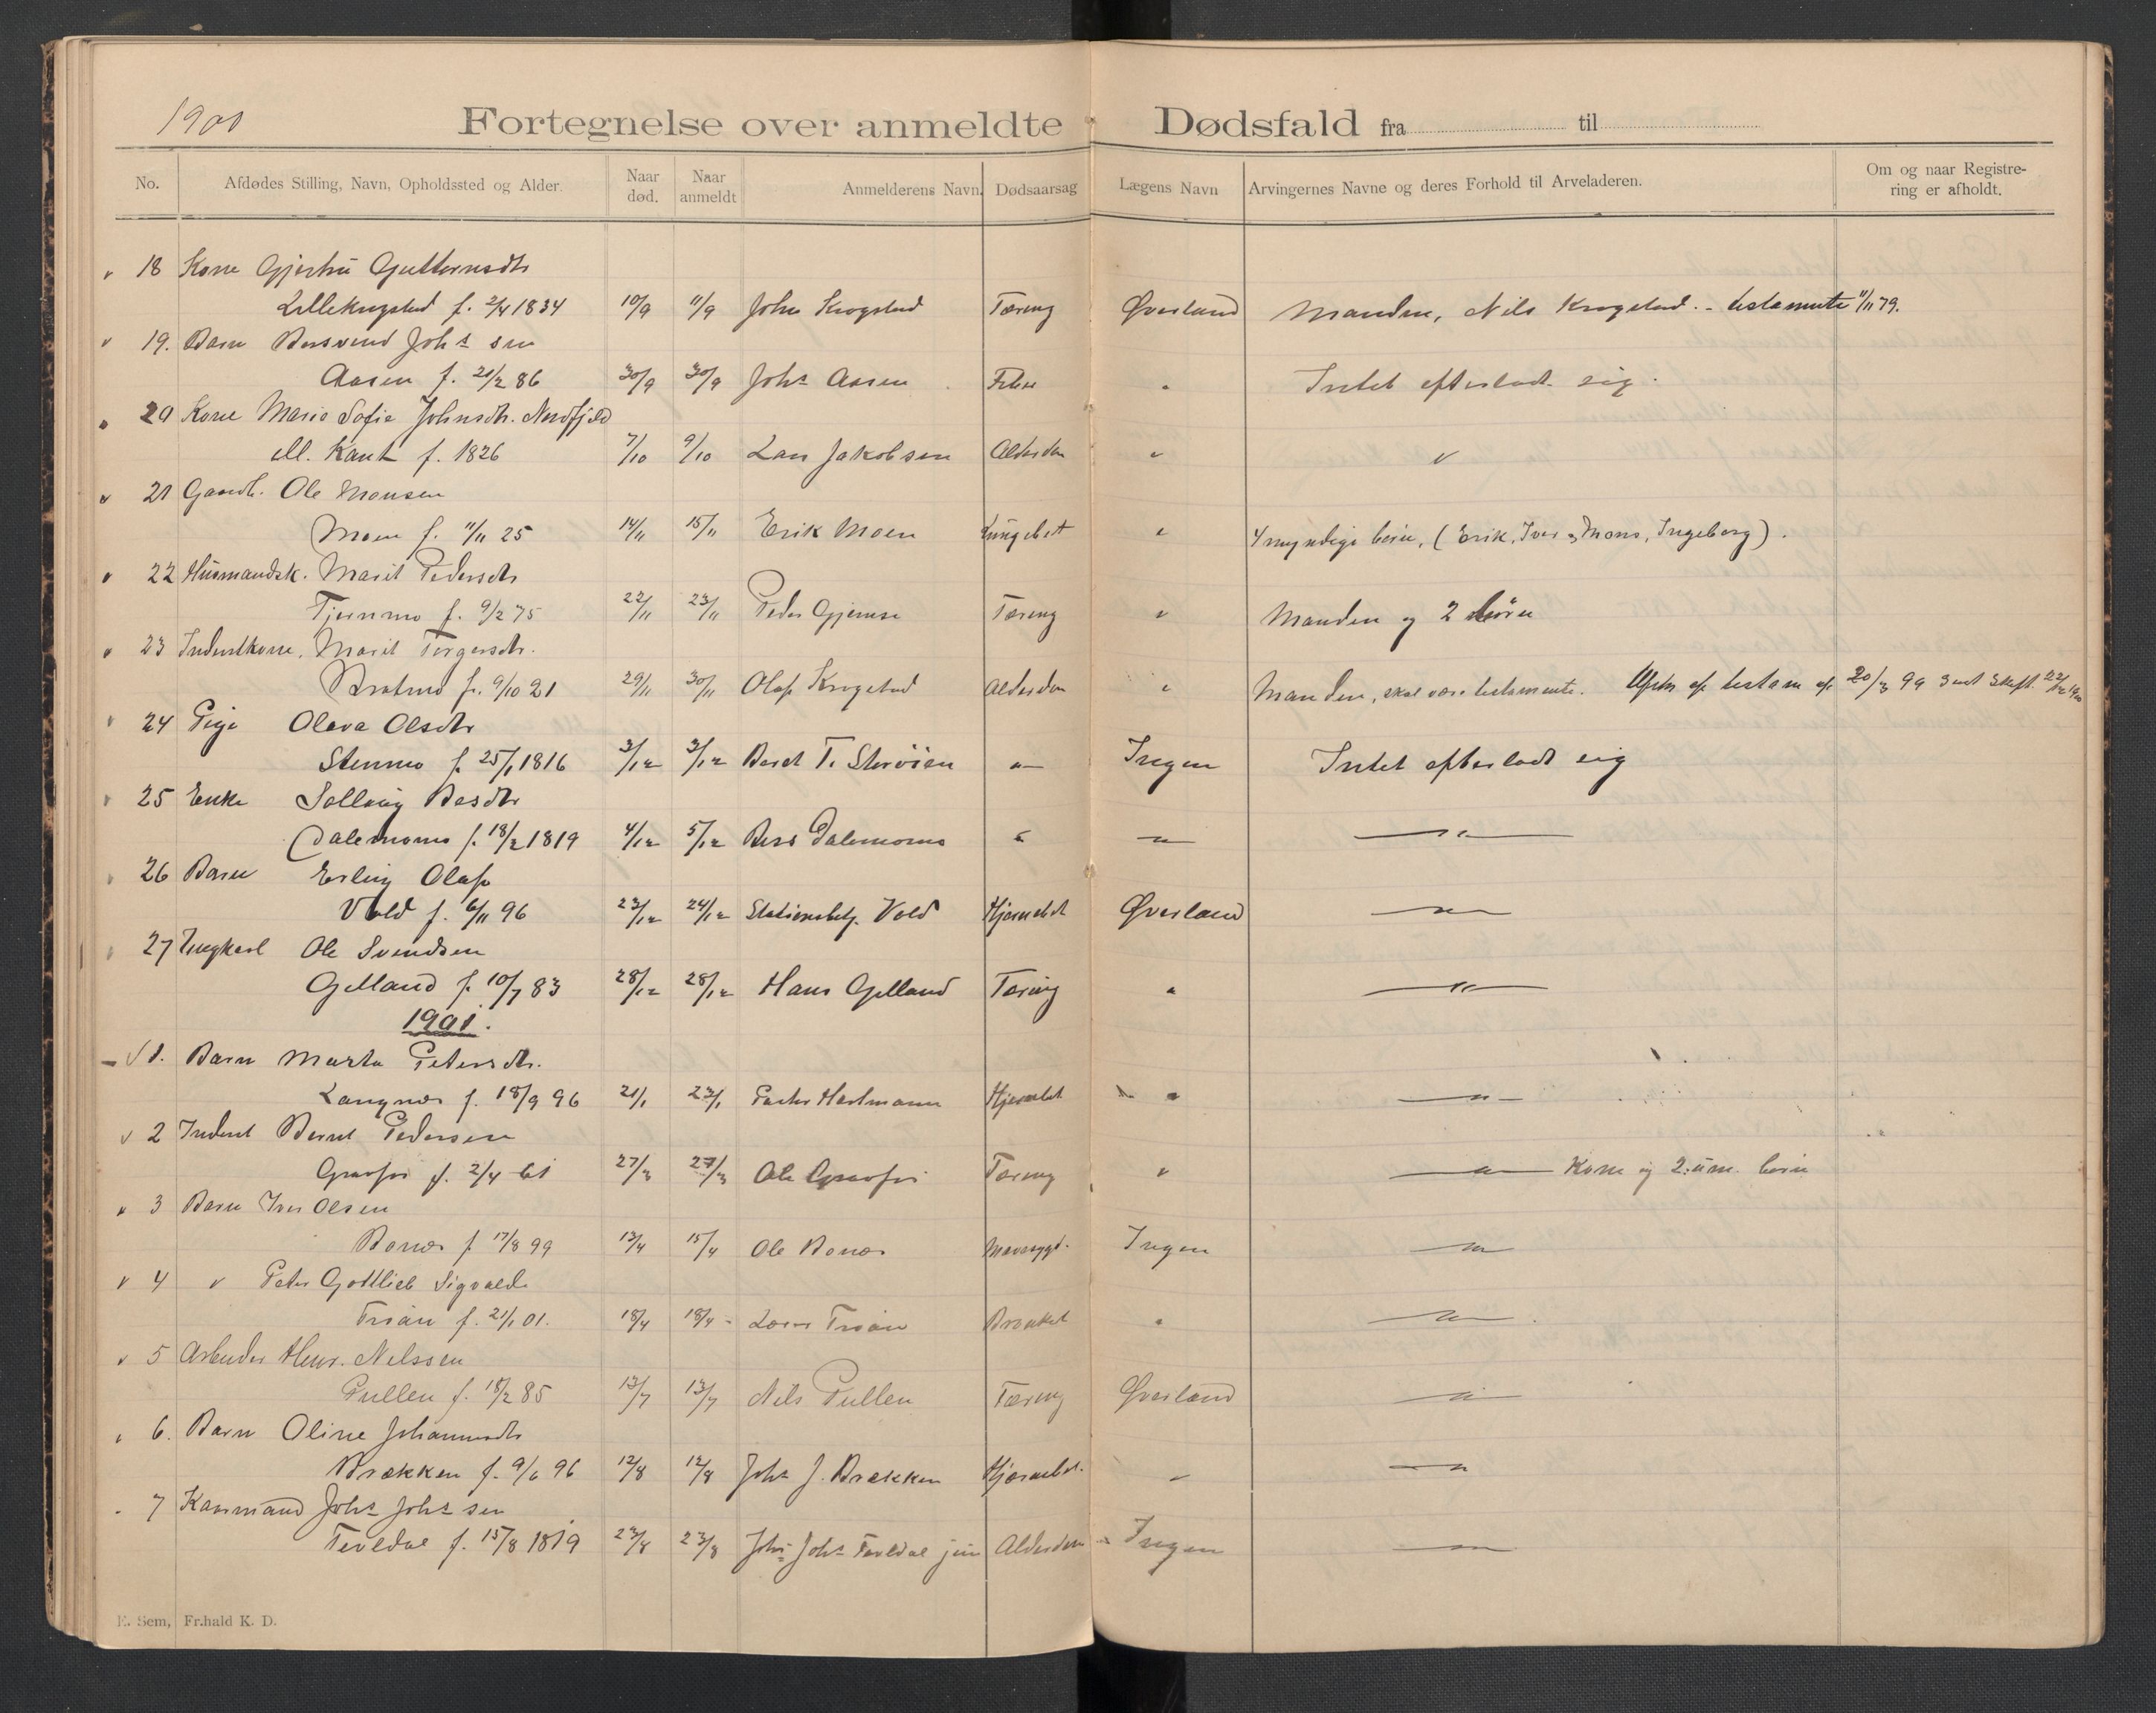 1900
Fortegnelse over anmeldte Dødsfald fra til
No. Afdødes Stilling, Navn, Opholdssted og Alder. Naar død. Naar anmeldt Anmelderens Navn. Dødsaarsag Lægens Navn Arvingernes Navne og deres Forhold til Arveladeren. Om og naar Registrering er afholdt.
18 Kone Gjertru Guttormsdtr
Lillekrogstad f. 2/4 1834 10/9 11/9 John Krogstad Tæring Øverland Manden, Nils Krogstad. - testamente 11/11 79.
19. Barn Bersvend Johs sen
Aasen f. 20/2 86 30/9 30/9 Johs Aasen Feber " Intet efterladt sig.
20 Kone Marie Sofie Johnsdtr. Nordfjeld
ell. Kant f. 1826 7/10 9/10 Lars Jakobsen Alderdom " "
21 Gaardb. Ole Monsen
Moen f. 11/11 25 14/11 15/11 Erik Moen Lungebet " 4 myndige børn, (Erik, Iver, Mons, Ingeborg).
22 Husmandsk. Marit Pedersdtr
Tjernmo f. 9/2 75 22/11 23/11 Peder Gjemse Tæring " Manden og 2 børn
23 Inderstkone. Marit Torgersdtr.
Bratmo f. 9/10 21 29/11 30/11 Olaf Krogstad Alderdom " Manden, skal være testamente. af testam af 20/3 99
24 Pige Olava Olsdtr
Stenmo f. 25/1 1816 3/12 3/12 Beret T. Storöien " Ingen Intet efterladt sig
25 Enke Sollaug Besdtr
Dalemomo f. 18/2 1819 4/12 5/12 Bers Dalemomo " " "
26 Barn Erling Olaf
Vold f. 6/11 96 23/12 24/12 Stationsbetj. Vold Hjernebet Øverland "
27 Ungkarl Ole Svendsen
Gilland f. 10/7 83 28/12 28/12 Hans Gilland Tæring " "
1901.
1. Barn Marta Petersdtr.
Langnes f. 18/9 96 21/1 23/1 Peter Hartmann Hjernebet " "
2 Inderst Bernt Pedersen
Graafor f. 2/4 61 27/3 27/3 Ole Graafor Tæring " " Kone og 2 um. børn
3 Barn Iver Olsen
Bones f. 17/8 99 13/4 15/4 Ole Bones Mavesygd. Ingen "
4 " Peter Gottlieb Sigvald
Trøan f. 21/1 01. 18/4 18/4 - Lars Trøan Bronket " "
5 Arbeider Henr. Nilssen
Pullen f. 18/2 85 13/7 13/7 Nils Pullen Tæring Øverland "
6. Barn Oline Johannesdtr
Brækken f. 9/6 96 12/8 12/8 Johs J. Brækken Hjernebet. " "
7 Kaarmand Johs Johs sen
Teveldal f. 15/8 1819 23/8 23/8 Johs Johs Teveldal jun Alderdom " Ingen "
E. Sem, Fr.hald K. D.